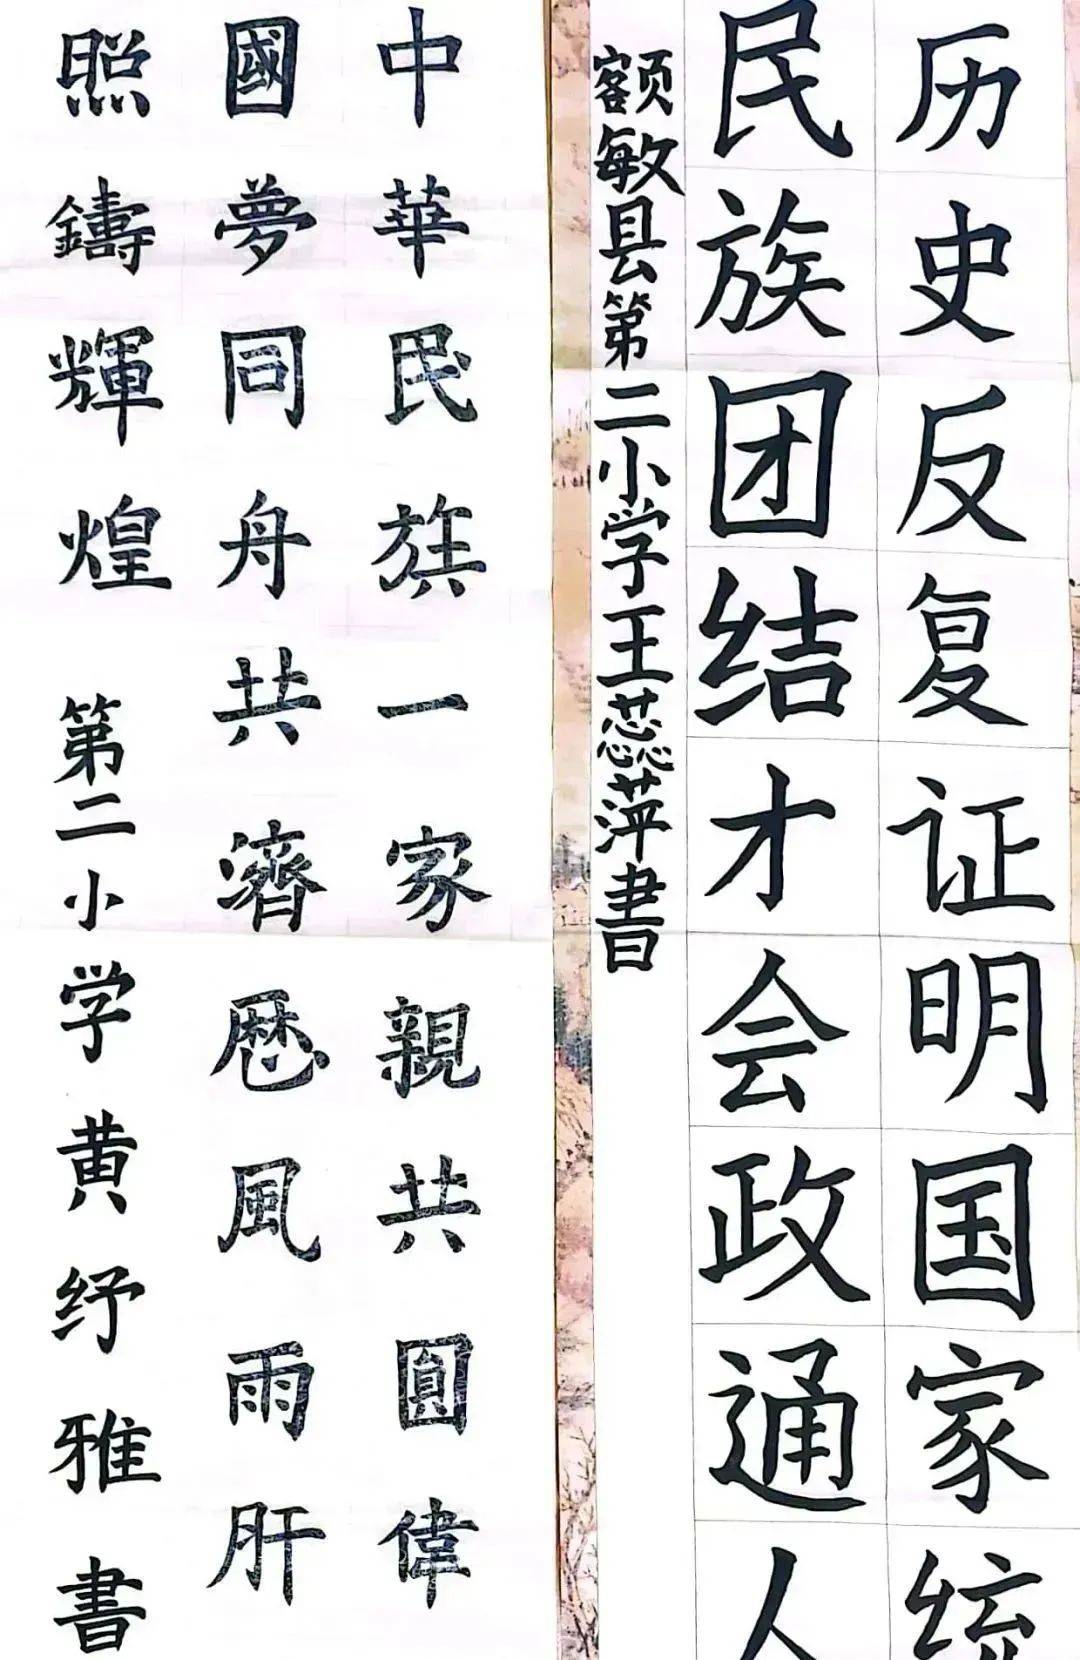 历史反复证明国家统
民族团结才会政通人
额敏县第二小学王蕊萍書
中華民族一家親共圓偉
國夢同舟共濟歷風雨肝
照鑄輝煌
第二小学黄纾雅書